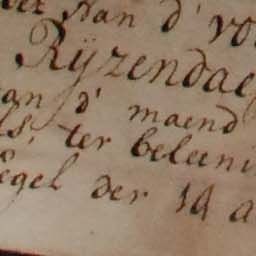 Aan d' vo
Rÿzendae
an d' maend
ter beleeni
egel der 14 a